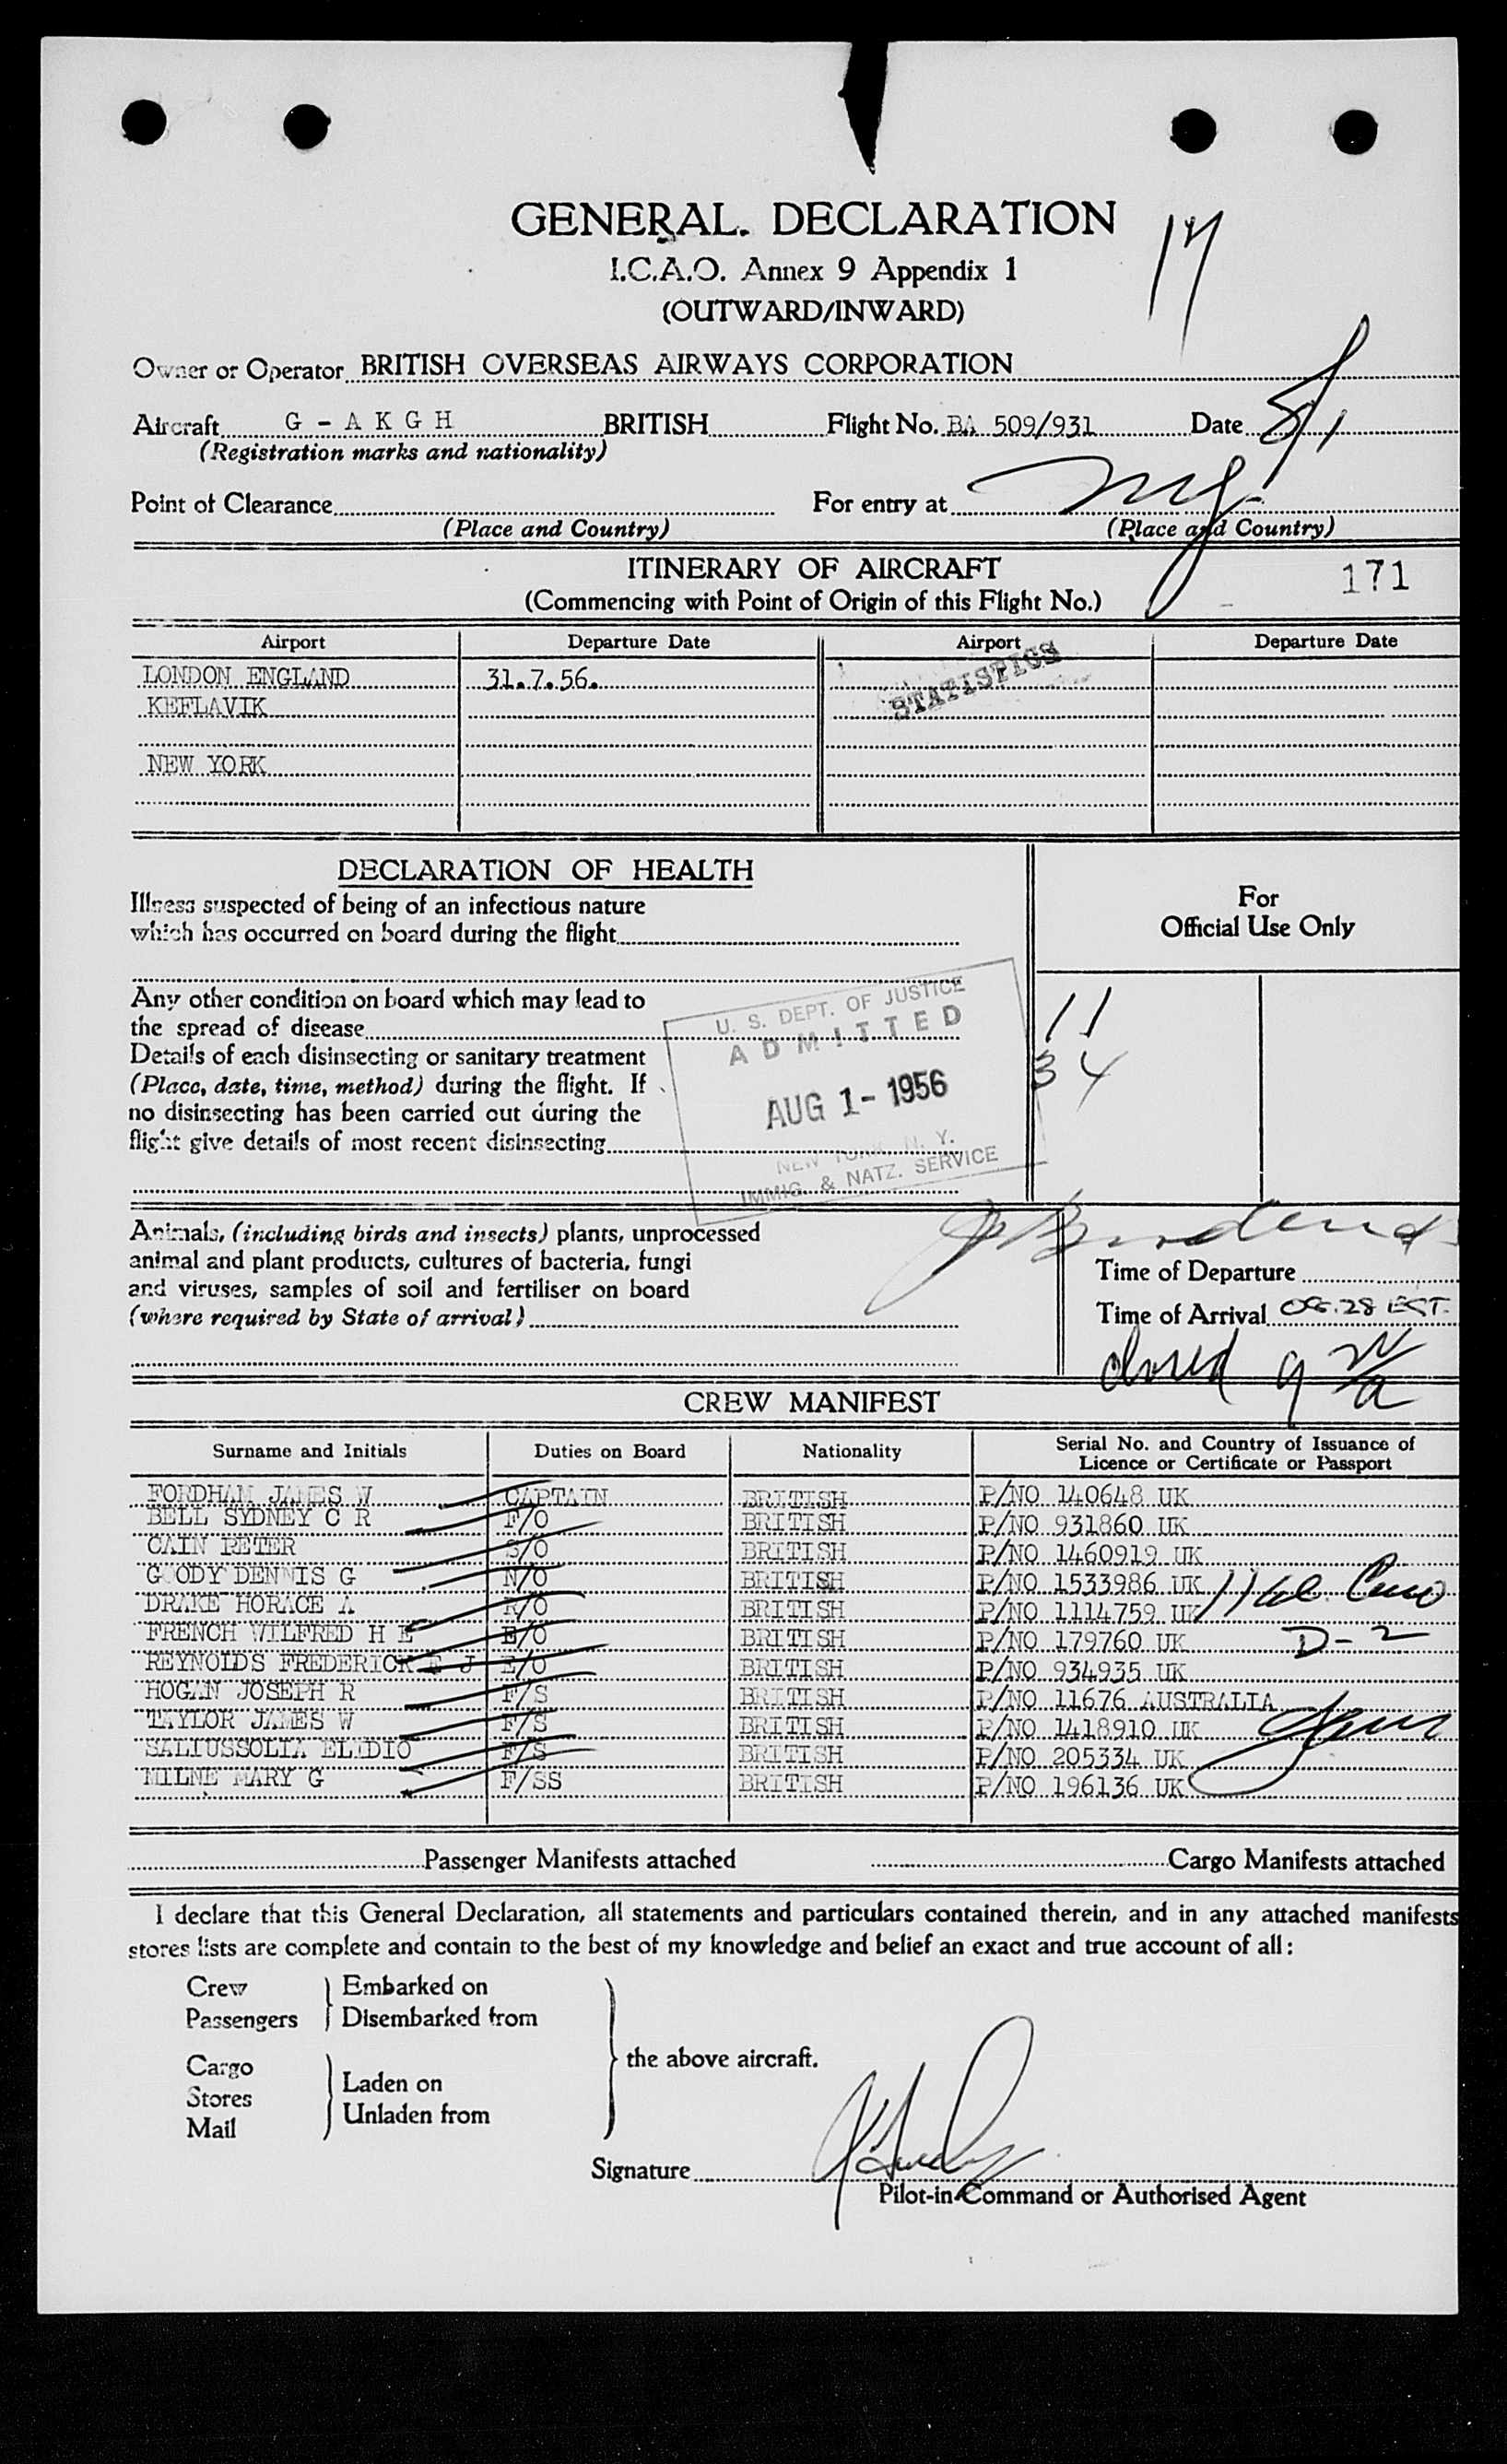 GENERAL. DECLARATION
I.C.A.O. Annex 9 Appendix 1
(OUTWARD/INWARD)
17
Owner or Operator BRITISH OVERSEAS AIRWAYS CORPORATION
Aircraft G - A K G H BRITISH Flight No. BA 509/931 Date 8/1
(Registration marks and nationality)
Point of Clearance For entry at NY
(Place and Country) (Place and Country)
ITINERARY OF AIRCRAFT
171
(Commencing with Point of Origin of this Flight No.)
Airport Departure Date Airport Departure Date
STATISTICS
LONDON ENGLAND 31.7.56.
KEFLAVIK
NEW YORK
DECLARATION OF HEALTH
Illness suspected of being of an infectious nature
which has occurred on board during the flight
For
Official Use Only
Any other condition on board which may lead to
the spread of disease
Details of each disinsecting or sanitary treatment
(Place, date, time, method) during the flight. If
no disinsecting has been carried out during the
flight give details of most recent disinsecting
U. S. DEPT. OF JUSTICE
ADMITTED
AUG 1- 1956
NEW YORK N. Y.
IMMIG. & NATZ. SERVICE
11
34
Animals, (including birds and insects) plants, unprocessed
animal and plant products, cultures of bacteria, fungi
and viruses, samples of soil and fertiliser on board
(where required by State of arrival)
Time of Departure
Time of Arrival 08.28 EST.
closed 9
CREW MANIFEST
Surname and Initials Duties on Board Nationality Serial No. and Country of Issuance of
Licence or Certificate or Passport
FORDHAM JAMES W CAPTAIN BRITISH P/NO 140648 UK
BELL SYDNEY C R F/O BRITISH P/NO 931860 UK
CAIN PETER S/O BRITISH P/NO 1460919 UK
GOODY DENNIS G N/O BRITISH P/NO 1533986 UK
DRAKE HORACE A R/O BRITISH P/NO 1114759 UK
FRENCH WILFRED H E E/O BRITISH P/NO 179760 UK
REYNOLDS FREDERICK E J E/O BRITISH P/NO 934935 UK
HOGAN JOSEPH R F/S BRITISH P/NO 11676 AUSTRALIA
TAYLOR JAMES W F/S BRITISH P/NO 1418910 UK
SALIUSSOLIA ELIDIO F/S BRITISH P/NO 205334 UK
MILNE MARY G F/SS BRITISH P/NO 196136 UK
D-2
Passenger Manifests attached Cargo Manifests attached
I declare that this General Declaration, all statements and particulars contained therein, and in any attached manifests
stores lists are complete and contain to the best of my knowledge and belief an exact and true account of all:
Crew Embarked on
Passengers Disembarked from
the above aircraft.
Cargo
Stores Laden on
Mail Unladen from
Signature
Pilot-in-Command or Authorised Agent